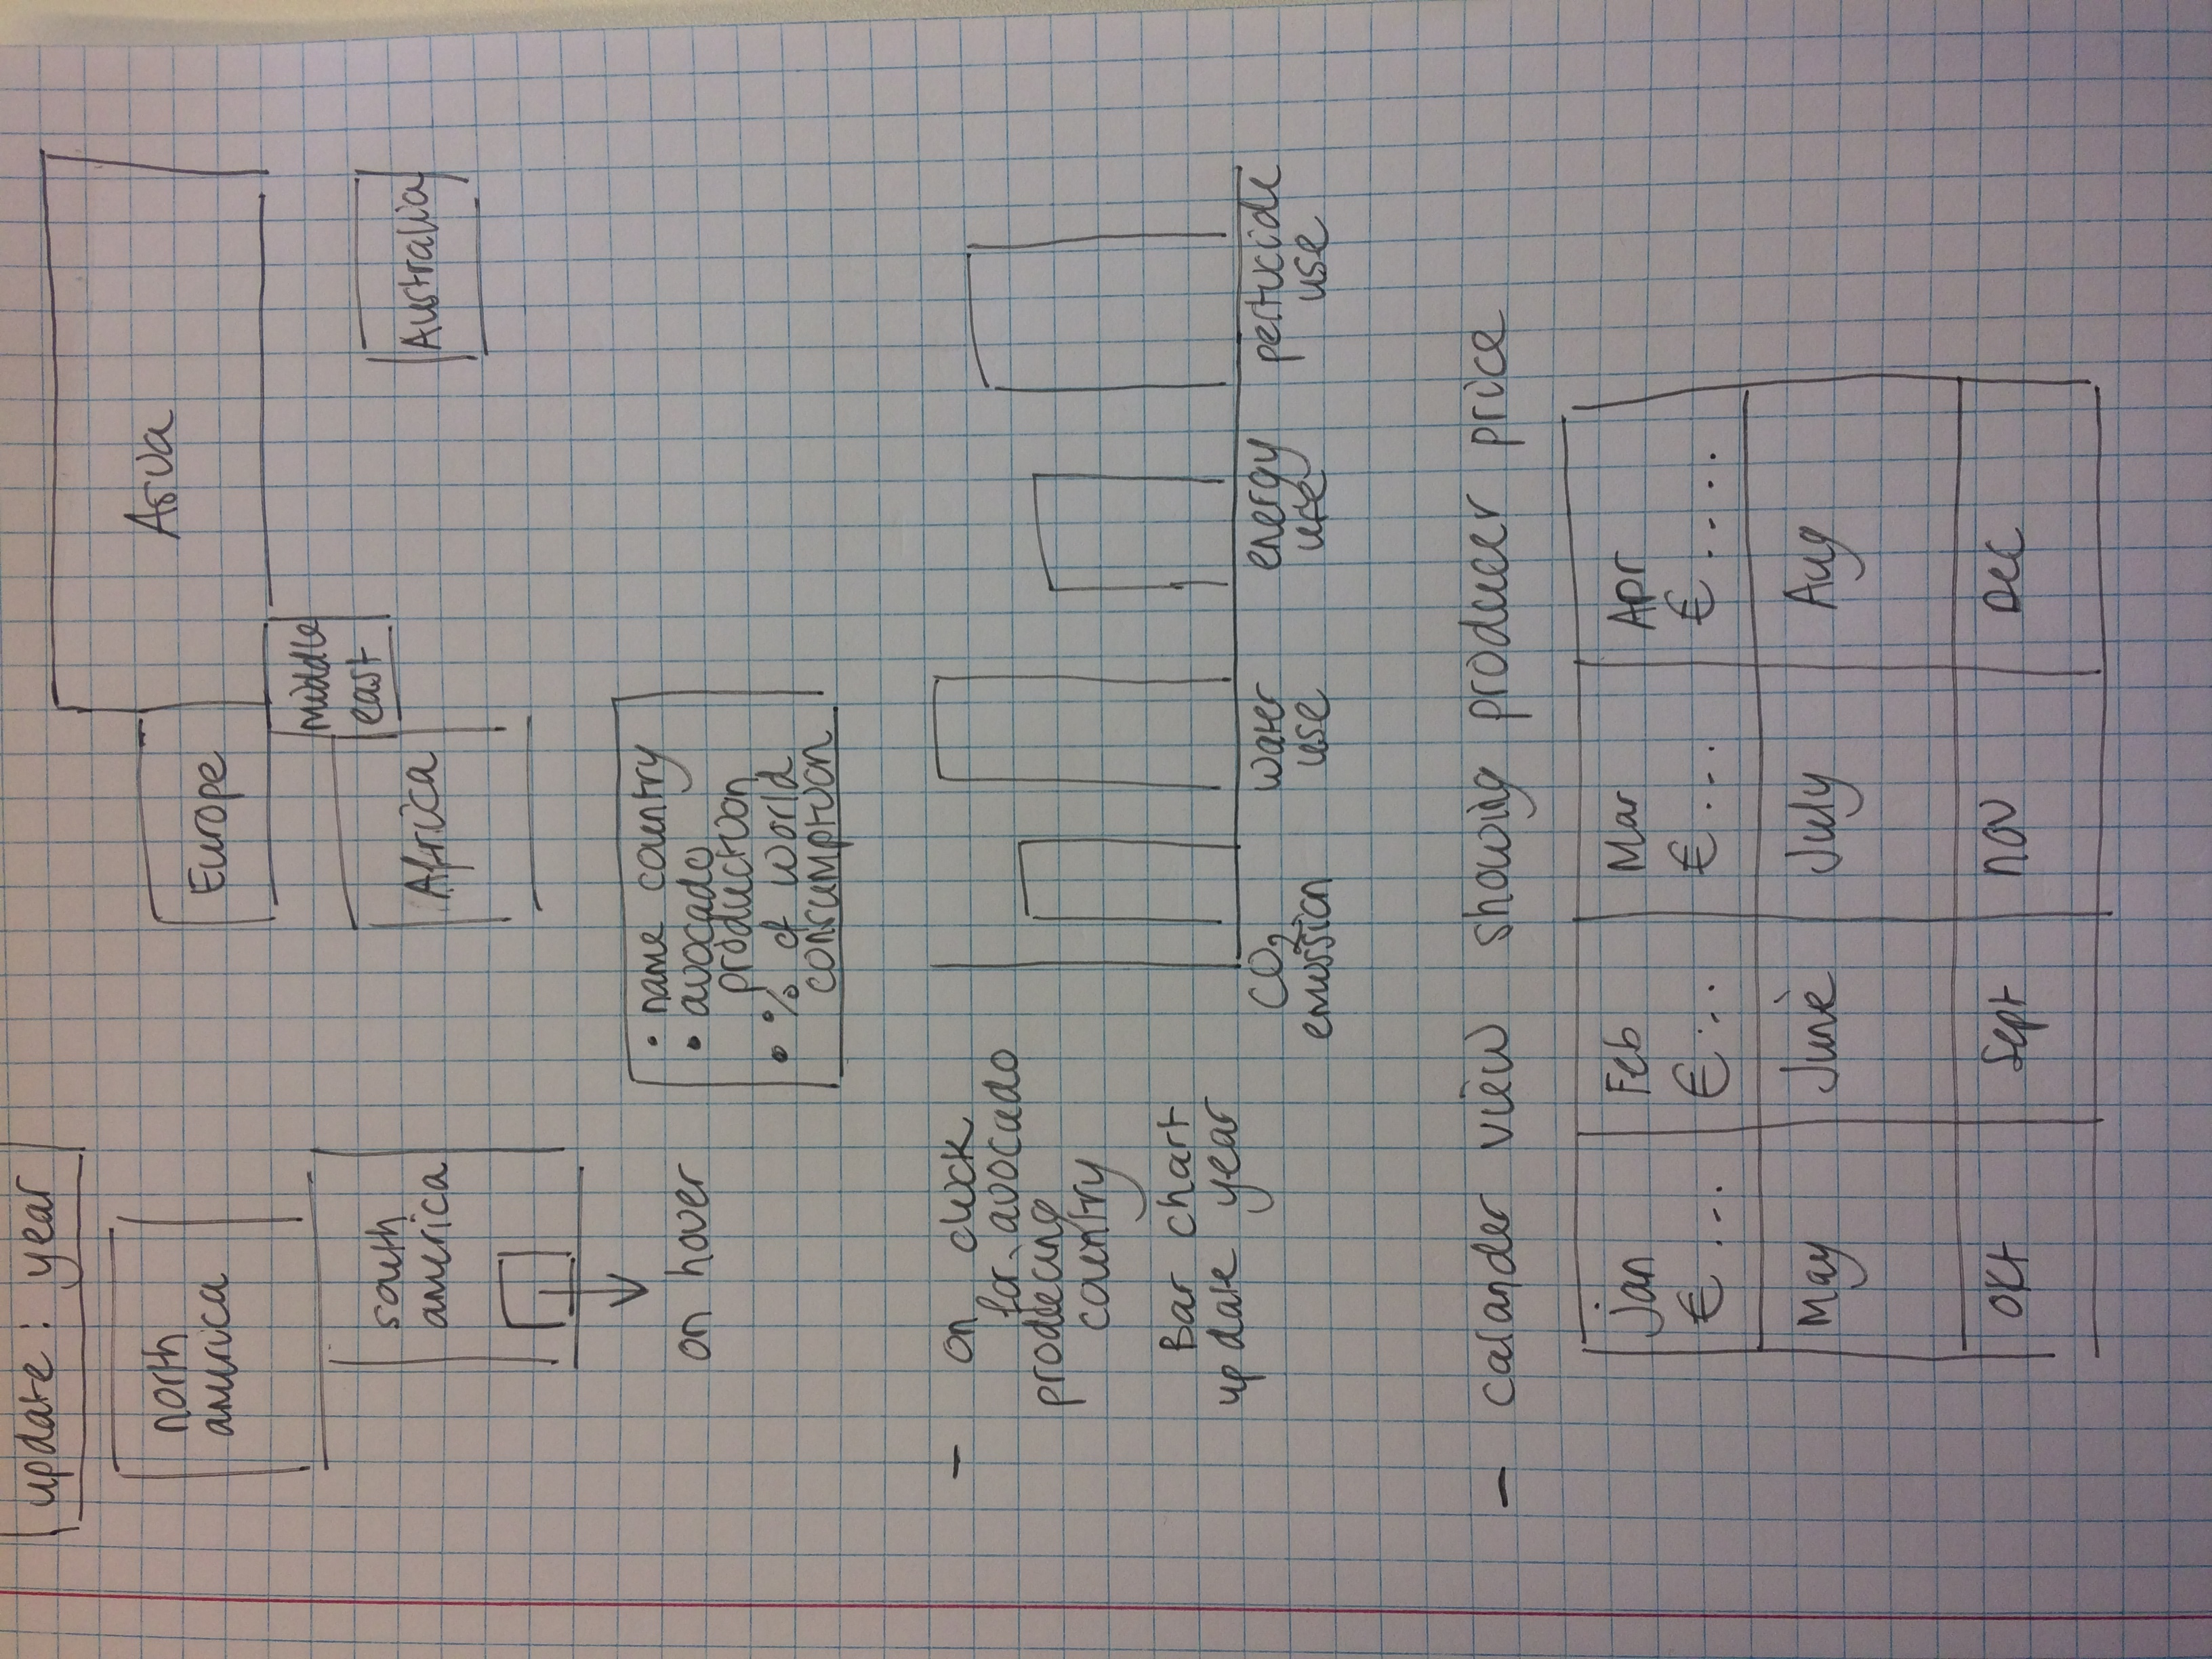 update: year
north
america
Europe
Asia
middle
east
south
america
Africa
Australia
on hover
• name country
• avocado
production
• % of world
consumption
- on click
for avocado
producing
country
Bar chart
update year
CO2
emission
water
use
energy
use
pesticide
use
- calander view showing producer price
jan
€ ...
Feb
€ ...
Mar
€ ...
Apr
€ ....
May
June
July
Aug
okt
Sept
nov
Dec